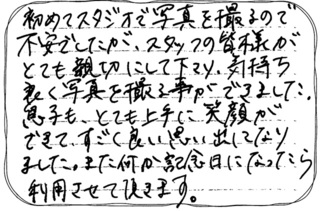 初めてスタジオで写真を撮るので
不安でしたが、スタッフの皆様が
とても親切にして下さり、気持ち
良く写真を撮る事ができました。
息子も、とても上手に笑顔が
できて、すごく良い思い出になり
ました。また何か記念日になったら
利用させて頂きます。